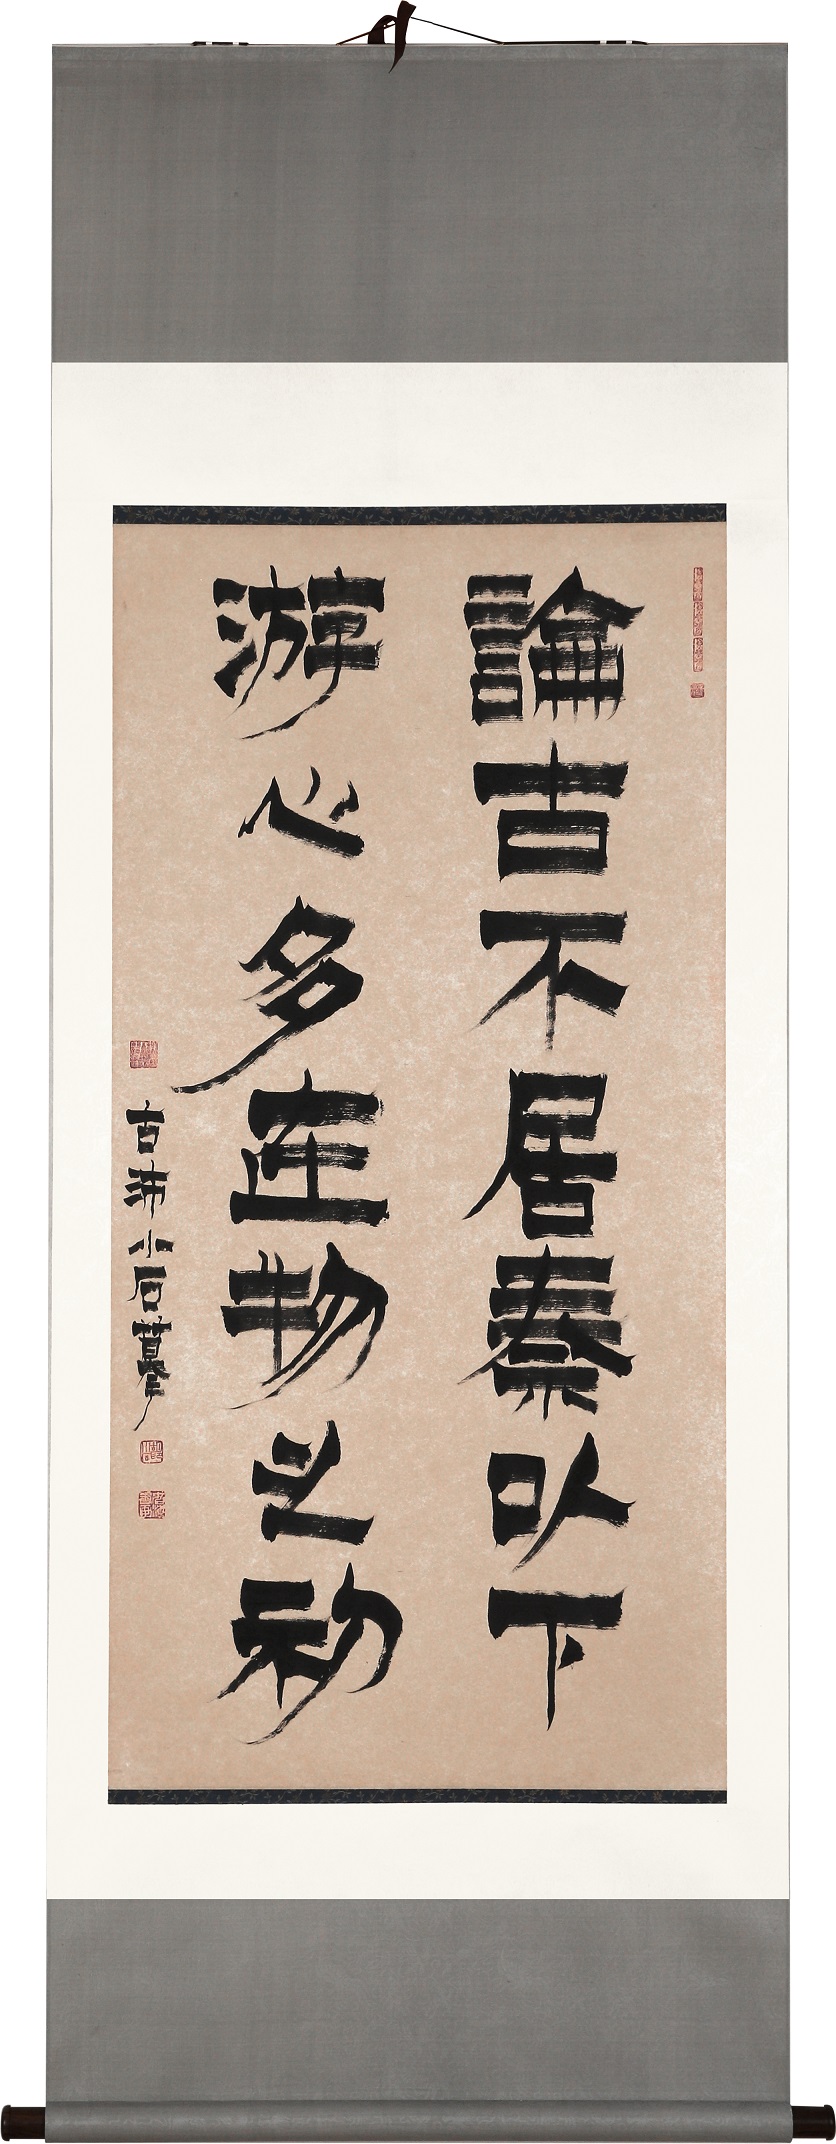 論古不居秦以下
游心多在物之初
古沛小石摹